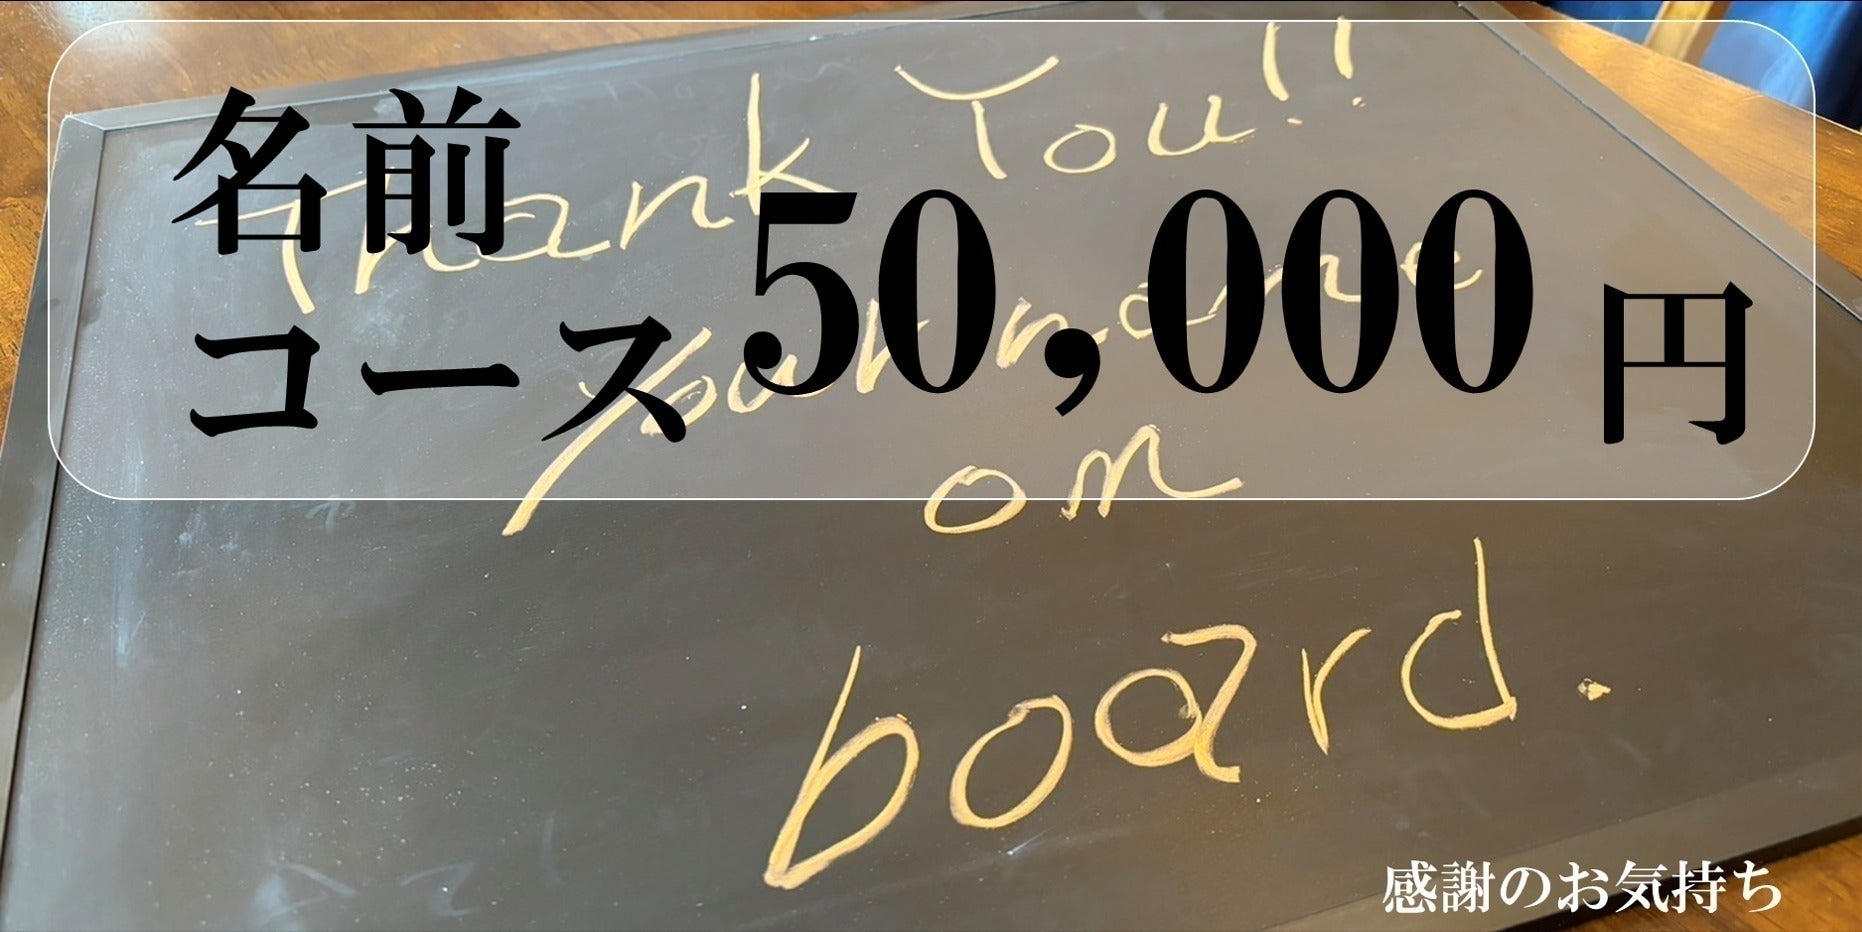 名前
コース
50,000円
Thank You!!
Your name
on
board.
感謝のお気持ち